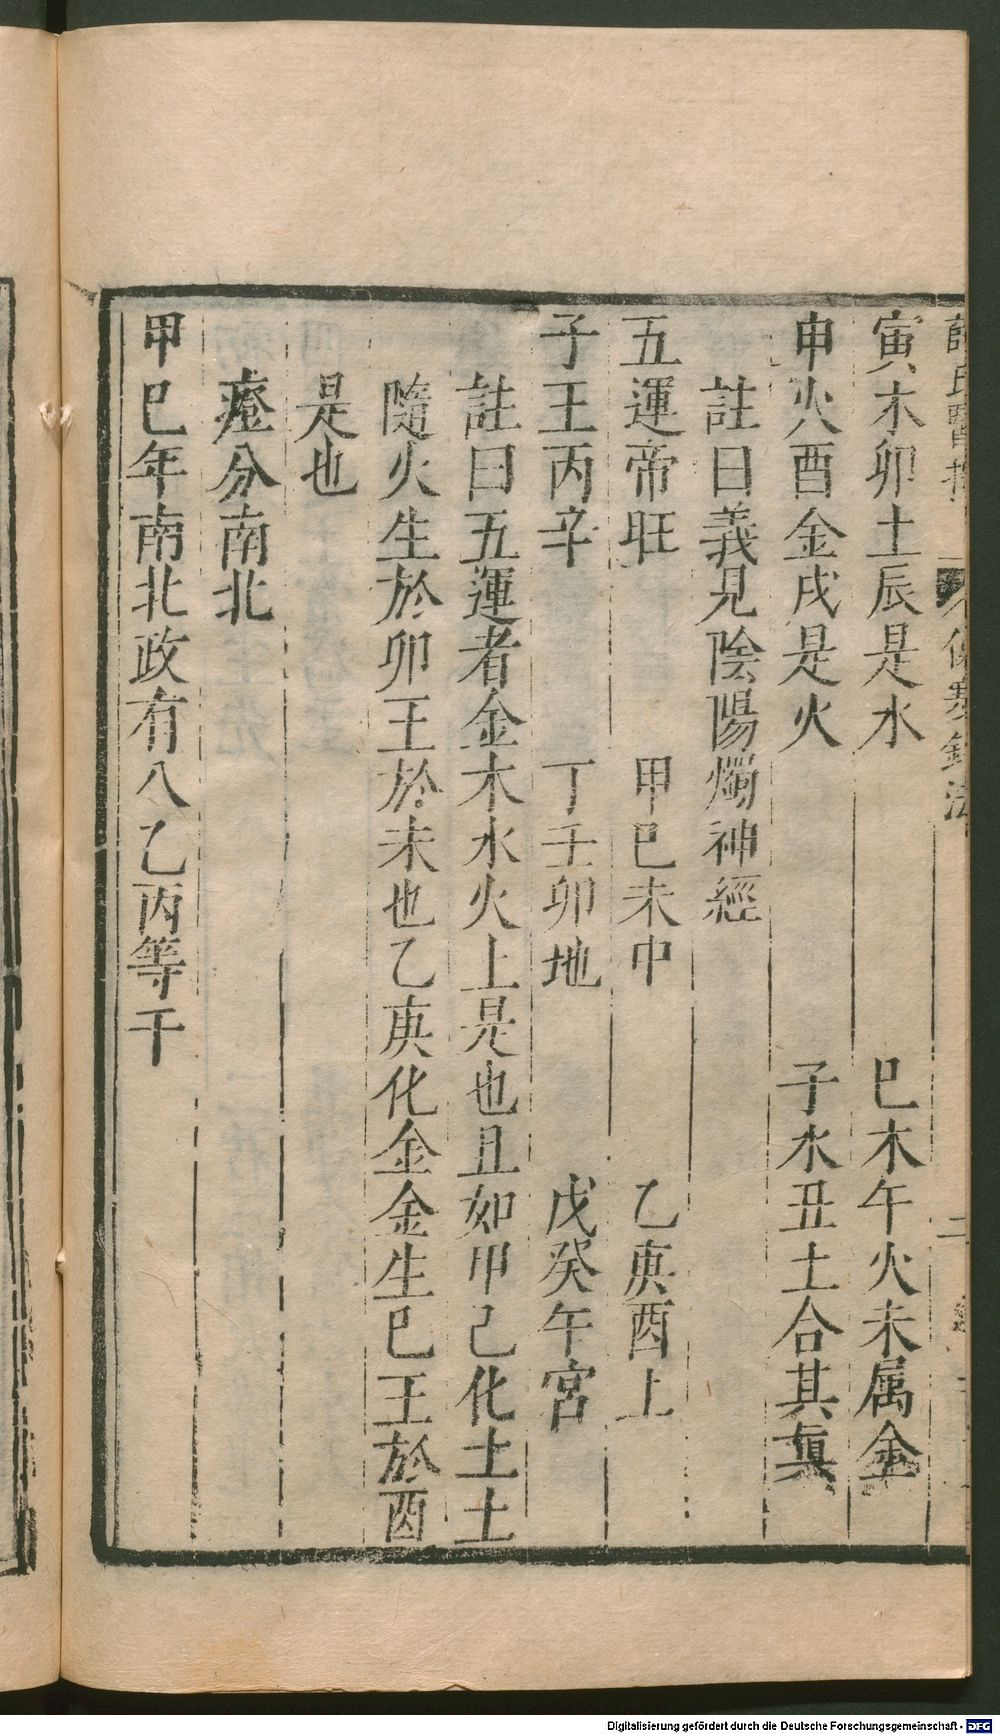 寅木卯土辰是水　巳木午火未属金
申火酉金戌是火　子水丑土合其眞
註曰義見陰陽燭神經
五運帝旺　甲巳未中　乙庚酉上
子王丙辛　丁壬卯地　戊癸午宮
註曰五運者金木水火土是也且如甲己化土土
隨火生於卯王於未也乙庚化金金生巳王於酉
是也
瘂分南北
甲巳年南北政有八乙丙等干
Digitalisierung gefördert durch die Deutsche Forschungsgemeinschaft - DFG